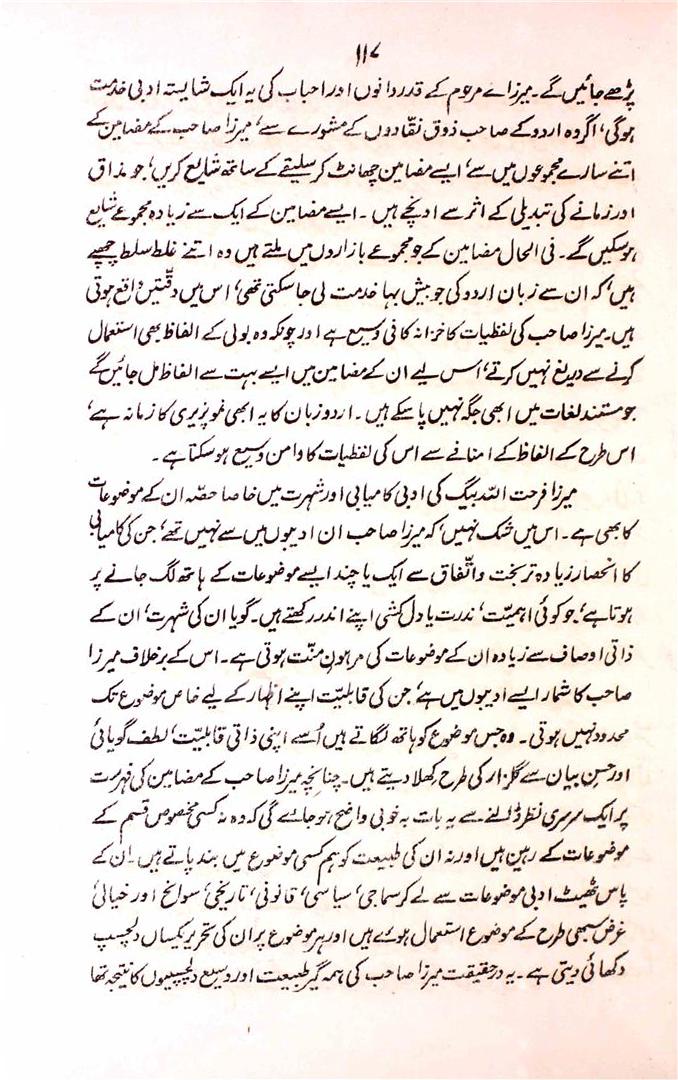 ۱۱۷
پڑھے جائیں گے۔ میرزاے مرحوم کے قدردانوں اور احباب کی یہ ایک شایستہ ادبی خدمت
ہوگی، اگر وہ اردو کے صاحب ذوق نقّادوں کے مشورے سے، میرزا صاحب کے مضامین کے
اتنے سارے مجموعوں میں سے، ایسے مضامین چھانٹ کر سلیقے کے ساتھ شایع کریں، جو مذاق
اور زمانے کی تبدیلی کے اثر سے اونچے ہیں۔ ایسے مضامین کے ایک سے زیادہ مجموعے شایع
ہوسکیں گے۔ فی الحال مضامین کے جو مجموعے بازاروں میں ملتے ہیں وہ اتنے غلط سلط چھپے
ہیں، کہ ان سے زبان اردو کی جو بیش بہا خدمت لی جاسکتی تھی، اس میں دقّتیں واقع ہوتی
ہیں۔ میرزا صاحب کی لفظیات کا خزانہ کافی وسیع ہے اور چونکہ وہ بولی کے الفاظ بھی استعمال
کرنے سے دریغ نہیں کرتے، اس لیے ان کے مضامین میں ایسے بہت سے الفاظ مل جائیں گے
جو مستند لغات میں ابھی جگہ نہیں پاسکے ہیں۔ اردو زبان کا یہ ابھی نمو پزیری کا زمانہ ہے،
اس طرح کے الفاظ کے اضافے سے اس کی لفظیات کا دامن وسیع ہوسکتا ہے۔
میرزا فرحت اللہ بیگ کی ادبی کامیابی اور شہرت میں خاصا حصّہ ان کے موضوعات
کا بھی ہے۔ اس میں شک نہیں، کہ میرزا صاحب ان ادیبوں میں سے نہیں تھے، جن کی کامیابی
کا انحصار زیادہ تر بخت و اتّفاق سے ایک یا چند ایسے موضوعات کے ہاتھ لگ جانے پر
ہوتا ہے، جو کوئی اہمیّت، ندرت یا دل کشی اپنے اندر رکھتے ہیں۔ گویا ان کی شہرت، ان کے
ذاتی اوصاف سے زیادہ ان کے موضوعات کی مرہون منّت ہوتی ہے۔ اس کے برخلاف میرزا
صاحب کا شمار ایسے ادیبوں میں ہے، جن کی قابلیّت اپنے اظہار کے لیے خاص موضوع تک
محدود نہیں ہوتی۔ وہ جس موضوع کو ہاتھ لگاتے ہیں اُسے اپنی ذاتی قابلیّت، لطف گویائی
اور حسنِ بیان سے گلزار کی طرح کھلا دیتے ہیں۔ چنانچہ میرزا صاحب کے مضامین کی فہرست
پر ایک سرسری نظر ڈالنے سے یہ بات بہ خوبی واضح ہوجائے گی کہ وہ نہ کسی مخصوص قسم کے
موضوعات کے رہین ہیں اور نہ ان کی طبیعت کو ہم کسی موضوع میں بند پاتے ہیں۔ ان کے
پاس ٹھیٹ ادبی موضوعات سے لے کر سماجی، سیاسی، قانونی، تاریخی، سوانح اور خیالی
غرض سبھی طرح کے موضوع استعمال ہوئے ہیں اور ہر موضوع پر ان کی تحریر یکساں دلچسپ
دکھائی دیتی ہے۔ یہ درحقیقت میرزا صاحب کی ہمہ گیر طبیعت اور وسیع دلچسپیوں کا نتیجہ تھا